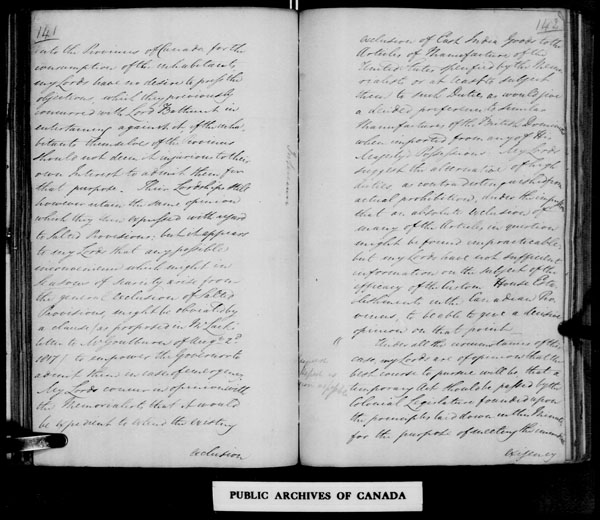 141
into the Provinces of Canada for the
consumption of the inhabitants,
my Lords have no desire to press the
objections, which they previously
concurred with Lord Bathurst in
entertaining against it if the inha
bitants themselves of the Provinces
should not deem it injurious to their
own Interest to admit them for
that purpose. Their Lordships still
however retain the same opinion
which they then expressed with regard
to Salted Provisions; but it appears
to my Lords that any possible
inconvenience which might in
seasons of scarcity arise from
the general exclusion of Salted
Provisions, might be obviated by
a clause (as proposed in Mr
letter to Mr Goulburn of Augt 2d
1817) to empower the Governor to
admit them in case of emergency
My Lords concur in opinion with
the Memorialists that it would
be expedient to extend the existing
exclusion
142
exclusion of East India Goods to the
Articles of Manufacture of the
United States specified by the Memo
rialists or at least to subject
them to such Duties as would give
a decided preference to similar
Manufactures of the British Dominions
when imported from any of His
Majesty's Possessions. My Lords
suggest the alternative of high
duties as contradistinguished from
actual prohibition, under the impression
that an absolute exclusion of
many of the Articles in question
might be found impracticable
but my Lords have not sufficient
information on the subject of the
efficacy of the Custom House Esta
blishments in the Canadian Pro
vinces, to be able to give a decisive
opinion on that point.
Under all the circumstances of this
case, my Lords are of opinion that the
best course to pursue will be that a
temporary Act should be passed by the
Colonial Legislature founded upon
the principles laid down in this Minute
for the purpose of meeting the immediate
exigency
PUBLIC ARCHIVES OF CANADA